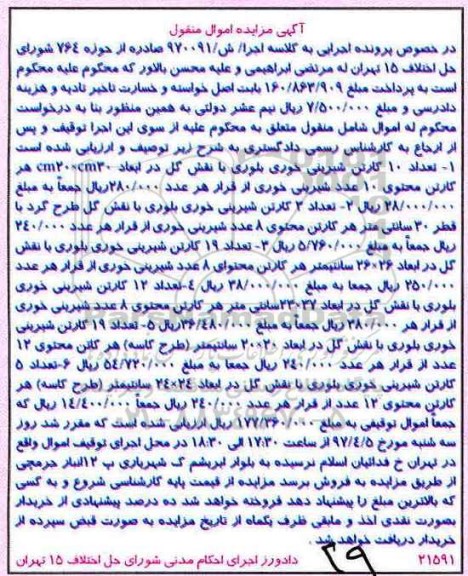 آگهی مزایده اموال منقول
در خصوص پرونده اجرایی به کلاسه اجرا/ ش/۹۷۰۰۹۱ صادره از حوزه ۷۶۴ شورای
حل اختلاف ۱۵ تهران له مرتضی ابراهیمی و علیه محسن بالاور که محکوم علیه محکوم
است به پرداخت مبلغ ۱۶۰/۸۶۳/۹۰۹ بابت اصل خواسته و خسارت تاخیر تادیه و هزینه
دادرسی و مبلغ ۷/۵۰۰/۰۰۰ ریال نیم عشر دولتی به همین منظور بنا به درخواست
محکوم له اموال شامل منقول متعلق به محکوم علیه از سوی این اجرا توقیف و پس
از ارجاع به کارشناس رسمی دادگستری به شرح زیر توصیف و ارزیابی شده است
۱- تعداد ۱۰ کارتن شیرینی خوری بلوری با نقش گل در ابعاد cm۲۰×cm۳۰ هر
کارتن محتوی ۱۰ عدد شیرینی خوری از قرار هر عدد ۲۸۰/۰۰۰ریال جمعاً به مبلغ
۲۸/۰۰۰/۰۰۰ ریال ۲- تعداد ۳ کارتن شیرینی خوری بلوری با نقش گل طرح گرد با
قطر ۳۰ سانتی متر هر کارتن محتوی ۸ عدد شیرینی خوری از قرار هر عدد ۲۴۰/۰۰۰
ریال جمعاً به مبلغ ۵/۷۶۰/۰۰۰ ریال ۳- تعداد ۱۹ کارتن شیرینی خوری بلوری با نقش
گل در ابعاد ۲۶×۲۶ سانتیمتر هر کارتن محتوای ۸ عدد شیرینی خوری از قرار هر عدد
۲۵۰/۰۰۰ ریال جمعاً به مبلغ ۳۸/۰۰۰/۰۰۰ ریال ۴-تعداد ۱۲ کارتن شیرینی خوری
بلوری با نقش گل در ابعاد ۳۷×۲۳سانتی متر هر کارتن محتوی ۸ عدد شیرینی خوری
از قرار هر ۳۸۰/۰۰۰ ریال جمعاً به مبلغ ۳۶/۴۸۰/۰۰۰ریال ۵- تعداد ۱۹ کارتن شیرینی
خوری بلوری با نقش گل در ابعاد ۲۰×۲۰ سانتیمتر (طرح کاسه) هر کارتن محتوی ۱۲
عدد از قرار هر عدد ۲۴۰/۰۰۰ ریال جمعاً به مبلغ ۵۴/۷۲۰/۰۰۰ ریال ۶-تعداد ۵
کارتن شیرینی خوری بلوری با نقش گل در ابعاد ۲۴×۲۴ سانتیمتر (طرح کاسه) هر
کارتن محتوی ۱۲ عدد از قرار هر عدد ۲۴۰/۰۰۰ ریال جمعاً ۱۴/۴۰۰/۰۰۰ ریال که
جمعاً اموال توقیفی به مبلغ ۱۷۷/۳۶۰/۰۰۰ ریال ارزیابی شده است که مقرر شد روز
سه شنبه مورخ ۹۷/۴/۵ از ساعت ۱۷:۳۰ الی ۱۸:۳۰ در محل اجرای توقیف اموال واقع
در تهران خ فدائیان اسلام نرسیده به بلوار ابریشم ک شهریاری پ ۱۲انبار جرمچی
از طریق مزایده به فروش برسد مزایده از قیمت پایه کارشناسی شروع و به کسی
که بالاترین مبلغ را پیشنهاد دهد فروخته خواهد شد. ده درصد پیشنهادی از خریدار
بصورت نقدی اخذ و مابقی ظرف یکماه از تاریخ مزایده به صورت قبض سپرده از
خریدار دریافت خواهد شد.
۲۹
۲۱۵۹۱ دادورز اجرای احکام مدنی شورای حل اختلاف ۱۵ تهران